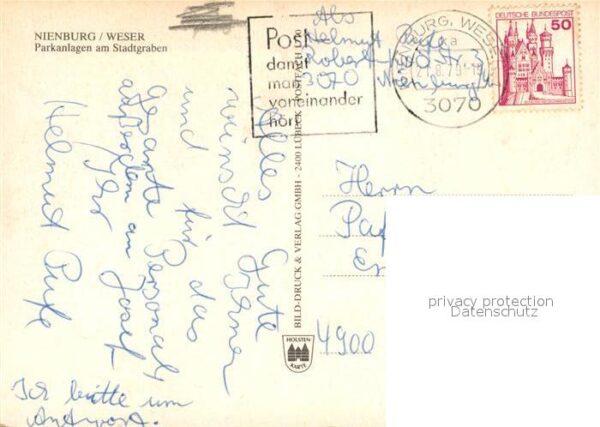 NIENBURG / WESER
Parkanlagen am Stadtgraben
Post
damit
man
voneinander
hört
Abs
Helmut
Robert Str. 3
3070 Nienburg
NIENBURG, WESER
3070
DEUTSCHE BUNDESPOST
50
Alles Gute
wünscht
und für das
gesamte Personal
außerdem an Josef
Ihr
Helmut
Ich bitte um
Antwort.
BILD-DRUCK & VERLAG GMBH - 2400 LÜBECK POSTFACH
HOLSTEN
KARTE
Herrn
4900
privacy protection
Datenschutz